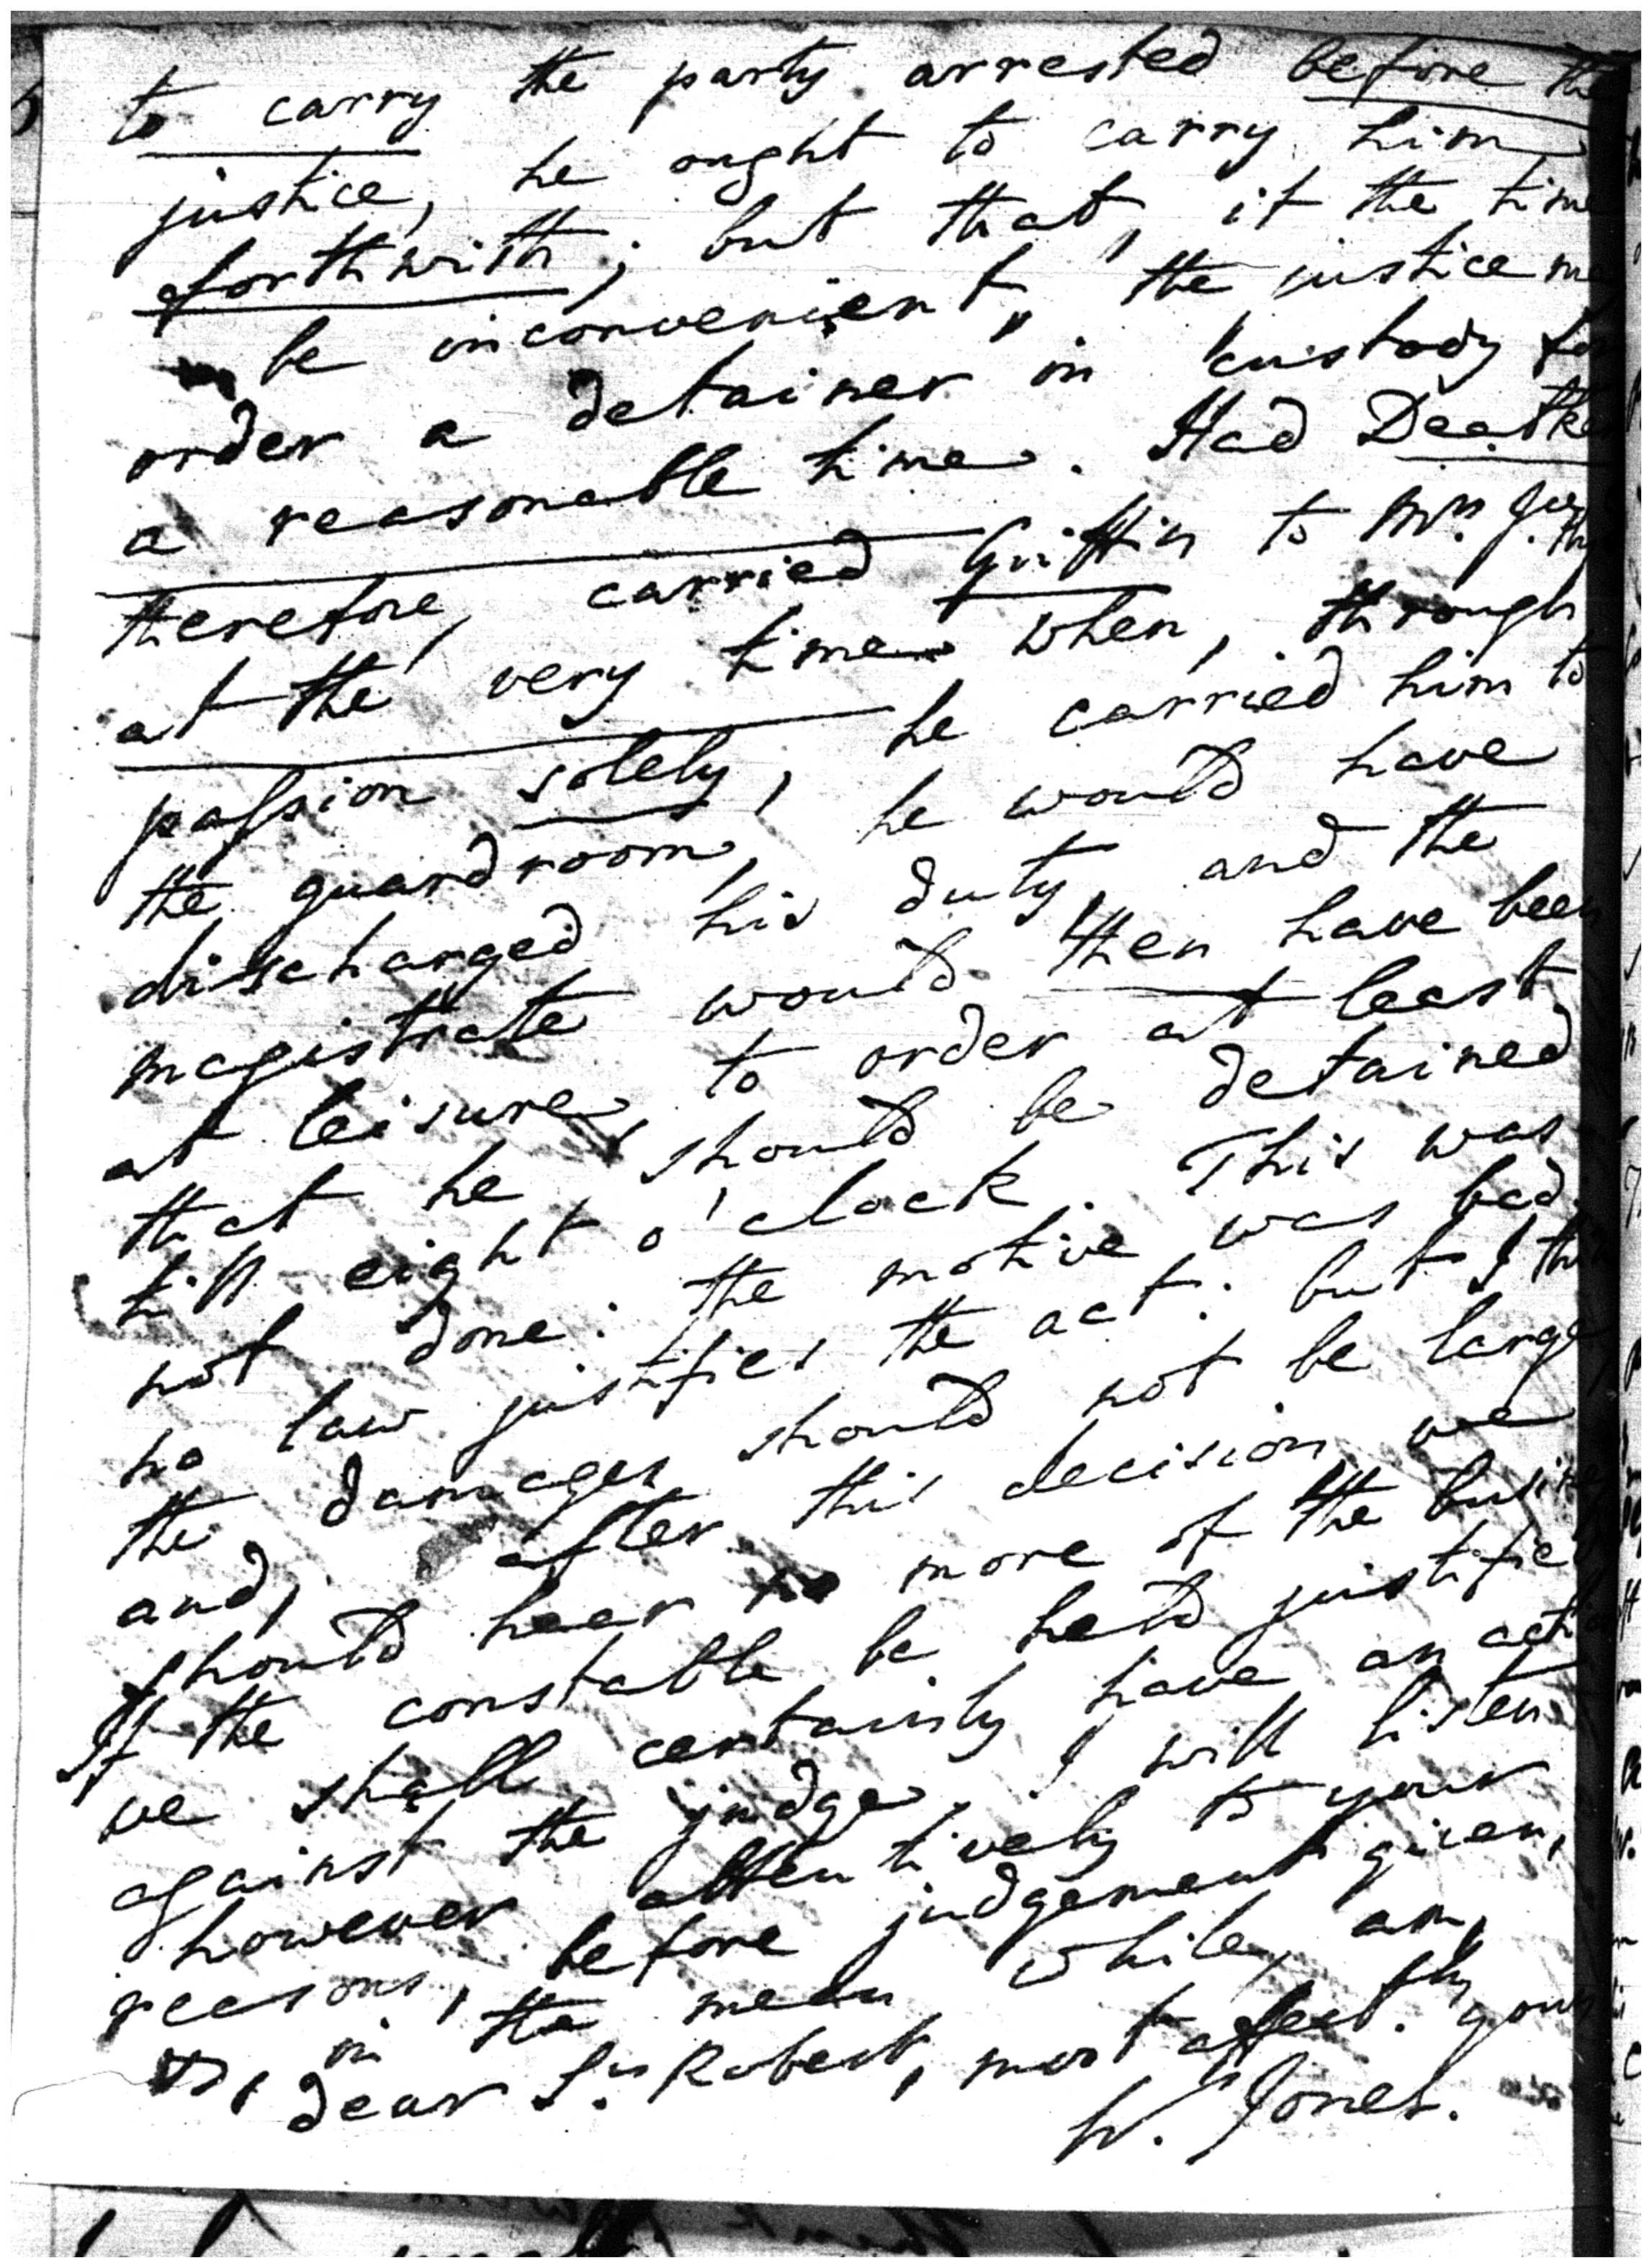 to carry the party arrested before the
justice, he ought to carry him
forthwith; but that, if the time
be inconvenient, the justice ma
order a detainer in custody for
a reasonable time. Had
therefore, carried Griffin to Mr.
at the very time when, through
passion solely, he carried him to
the guardroom, he would have
discharged his duty, and the
magistrate would then have been
at leisure, to order at least
that he should be detained
till eight o'clock. This was
not done: the motive was bad.
no law justifies the act: but I thi
the damages should not be large
and, after this decision we
should hear no more of the busine
If the constable be held justified
we shall certainly have an actio
against the judge. I will listen
however attentively to your
reasons, before judgement given,
in the mean while, am,
dear Sr. Robert, most affect.ly yours
W. Jones.